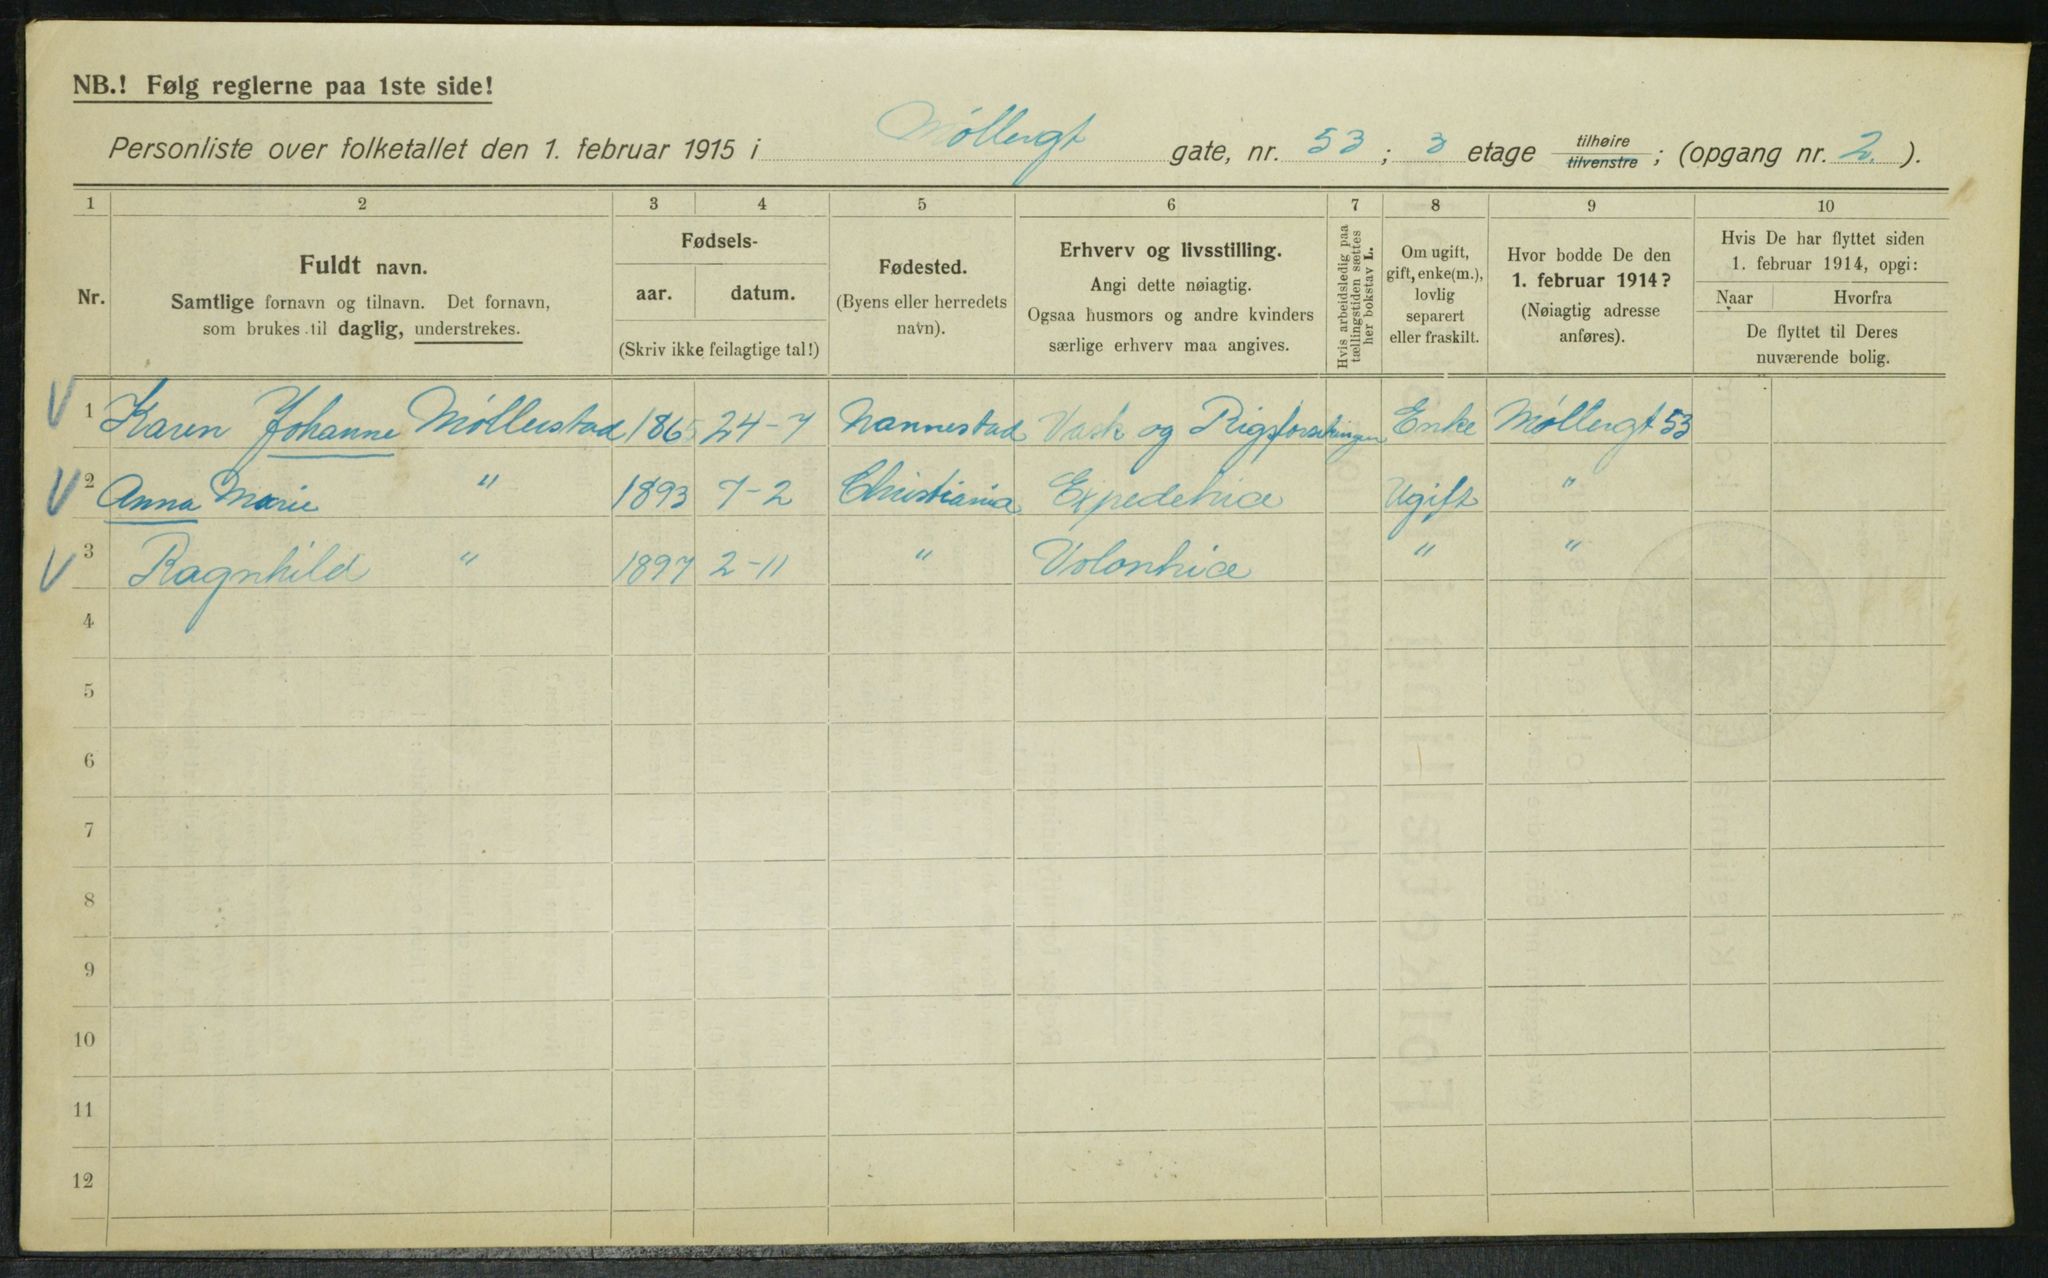 NB.! Følg reglerne paa 1ste side!
Personliste over folketallet den 1. februar 1915 i Møllergt gate, nr. 53 ; 3 etage tilhøire tilvenstre ; (opgang nr. 2. ).
1 2 3 4 5 6 7 8 9 10
Nr.
Fuldt navn.
Samtlige fornavn og tilnavn. Det fornavn,
som brukes til daglig, understrekes.
Fødsels-
aar. datum.
(Skriv ikke feilagtige tal!)
Fødested.
(Byens eller herredets
navn).
Erhverv og livsstilling.
Angi dette nøiagtig.
Ogsaa husmors og andre kvinders
særlige erhverv maa angives.
Hvis arbeidsledig paa
tællingstiden sættes
her bokstav L.
Om ugift,
gift, enke(m.),
lovlig
separert
eller fraskilt.
Hvor bodde De den
1. februar 1914?
(Nøiagtig adresse
anføres).
Hvis De har flyttet siden
1. februar 1914, opgi:
Naar Hvorfra
De flyttet til Deres
nuværende bolig.
V 1 Karen Johanne Møllerstad 1865 24-7 Nannestad Vask og Rigsforsikringen Enke Møllergt 53
V 2 Anna Marie " 1893 7-2 Christiania Expedetrice Ugift "
V 3 Ragnhild " 1897 2-11 " Volontrice " "
4
5
6
7
8
9
10
11
12